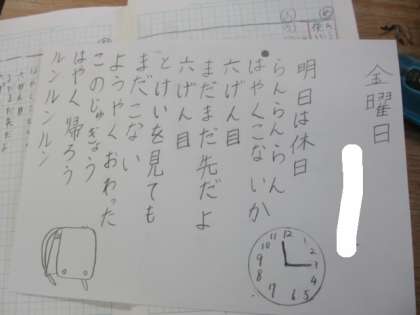 金曜日
明日は休日
らんらんらん
はやくこないか
六げん目
まだまだ先だよ
六げん目
とけいを見ても
まだこない
ようやくおわった
このじゅぎょう
はやく帰ろう
ルンルンルン
12
1
2
3
4
5
6
7
8
9
10
11